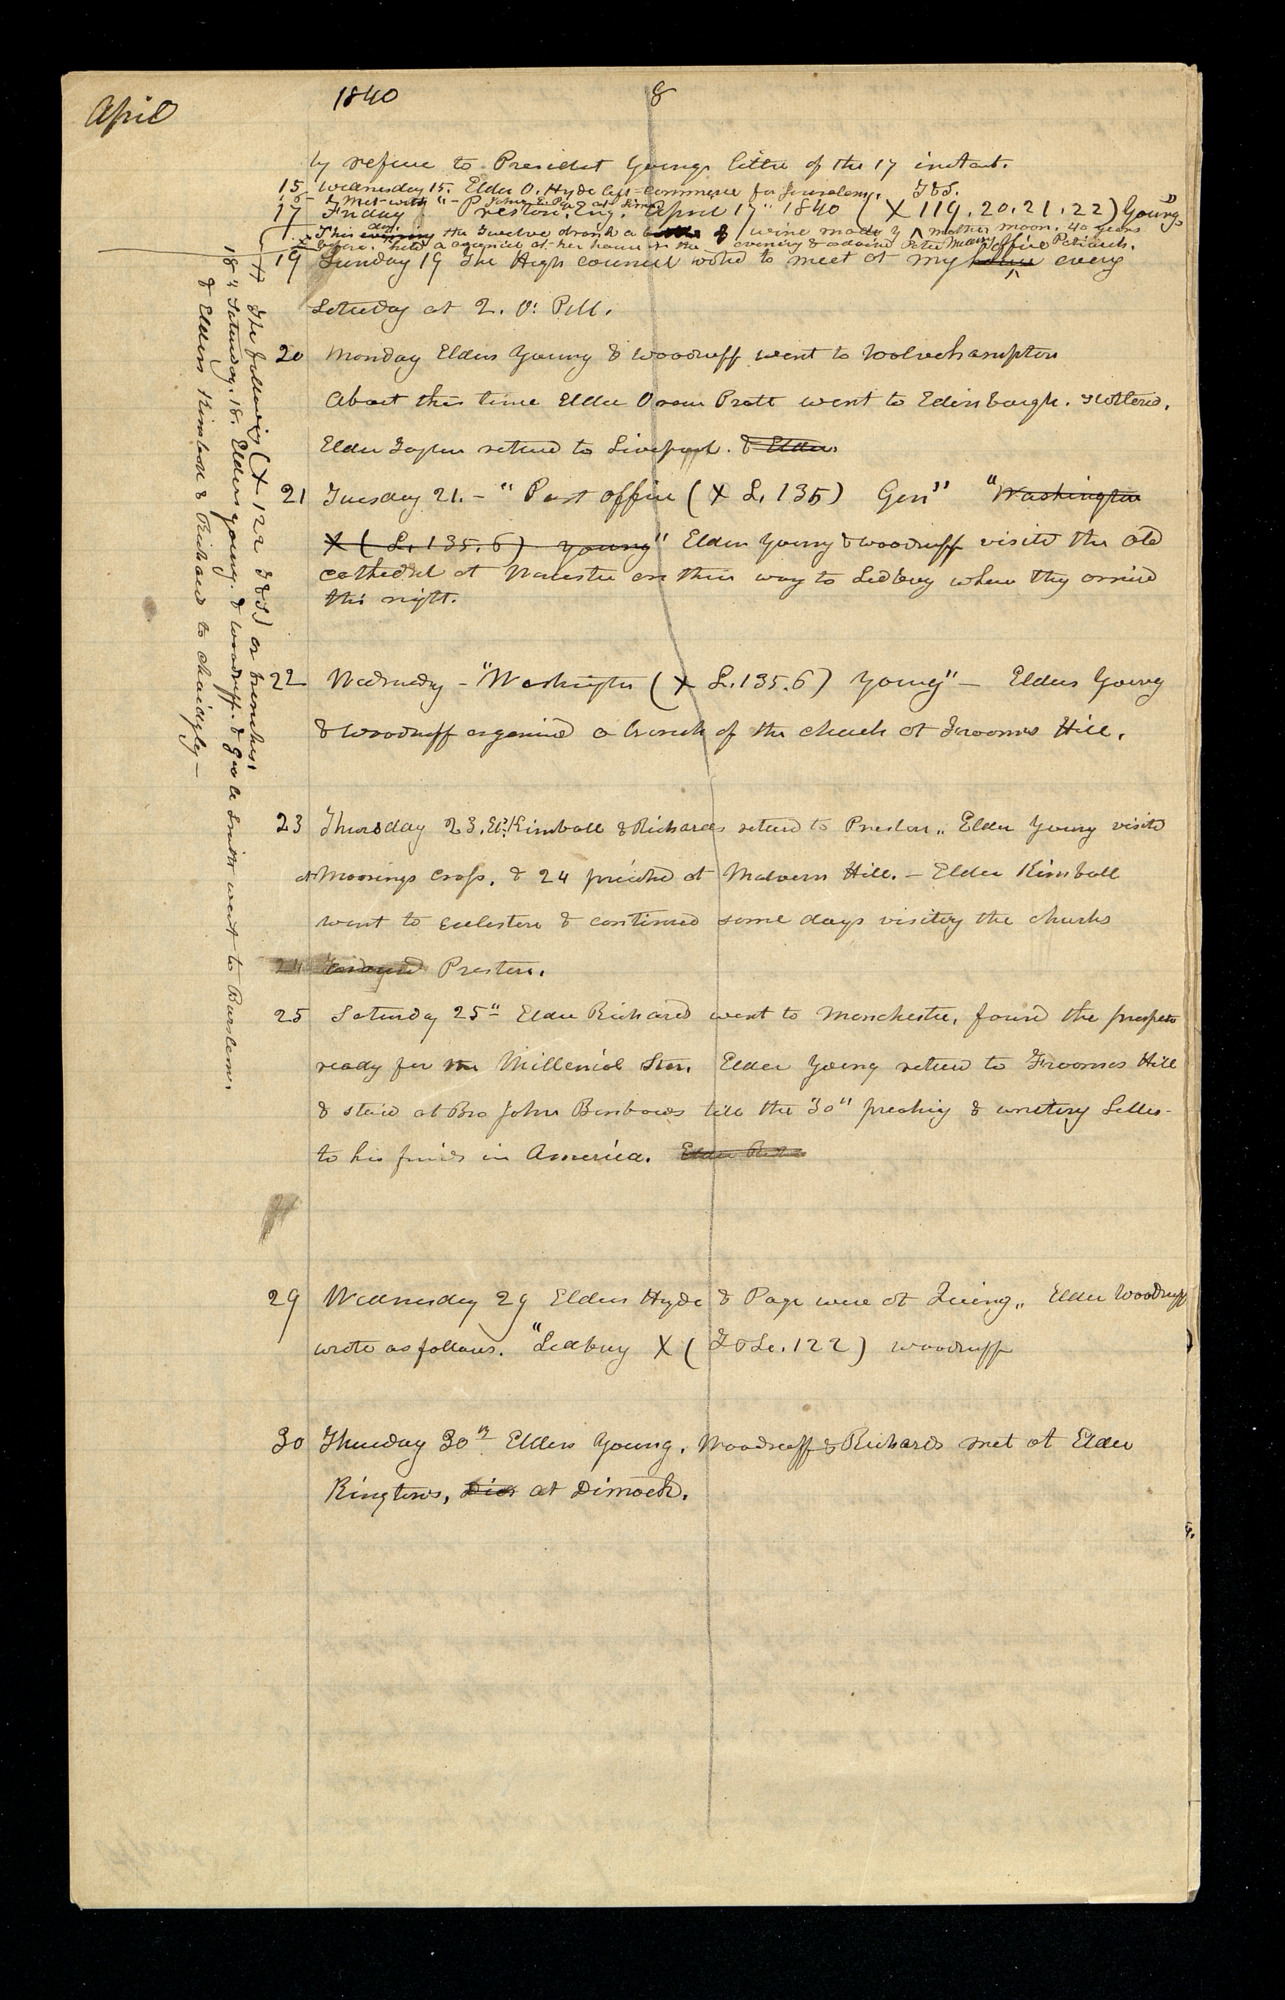 April
1840
8
by refrence to President Youngs letter of the 17 instant.
15 Wednesday 15. Elder O. Hyde left Commerce for Jerusalem. T&S.
16 I Met with John E. Page at Lima
17 Friday "Preston. Eng. April 17" 1840 (X 119. 20. 21. 22) Young"
This evening day. the Twelve drank a bottle of wine made by mother moon. 40 years
before. held a council at her house in the evening & ordained Peter Melling Patriarch.
19 Sunday 19 The High council voted to meet at my house office every
Saturday at 2. O. P.M.
20 Monday Elders Young & Woodruff went to Wolverhampton
About this time Elder Orson Pratt went to Edinburgh. Scotland.
Elder Taylor returned to Liverpool. & Elder
21 Tuesday 21. - "Post office (X L. 135) Gen" "Washington
X (L. 135. 6) Young" Elder Young & Woodruff visited the old
cathedral at Worcester on their way to Ledbury where they arrived
this night.
22 Wednesday - "Washington (X L. 135. 6) Young" - Elders Young
& Woodruff organized a branch of the church at Frooms Hill.
23 Thursday 23. Els. Kimball & Richards returned to Preston,, Elder Young visited
at Moorings Cross. & 24 preached at Malvern Hill. - Elder Kimball
went to Eccleston & continued some days visiting the churches
24 around Preston.
25 Saturday 25" Elder Richards went to Manchester, found the prospectus
ready for the Millenial Star. Elder Young returned to Frooms Hill
& staid at Bro John Benbows till the 30" preaching & writing Letters
to his friends in America. Elder Rich
29 Wednesday 29 Elders Hyde & Page were at Quincy,, Elder Woodruff
wrote as follows. "Ledbury X (T & S. 122) Woodruff
30 Thursday 30th Elders Young, Woodruff & Richards met at Elder
Kingtons, Dim at Dimock.
H The following (X 122 T&S) on branches.
18 Saturday. 18. Elders Young. & Woodruff. & Geo A Smith went to Burslem.
& Elders Kimball & Richards to Chaidgley -